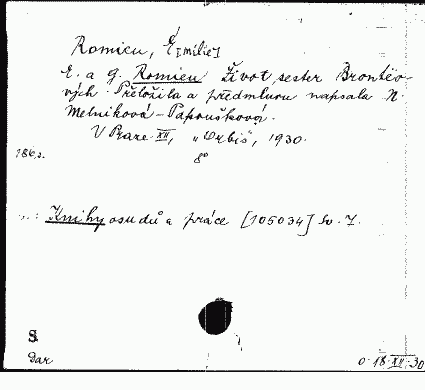 Romieu, E[milie]
E. a G. Romieu Život sester Brontëo-
vých. Přeložila a předmluvu napsala N.
Melniková-Papoušková.
V Praze XII, „Orbis", 1930.
186 s. 8°
Knihy osudů a práce [105034] Sv. 7.
S.
Dar
0-18-XII-30